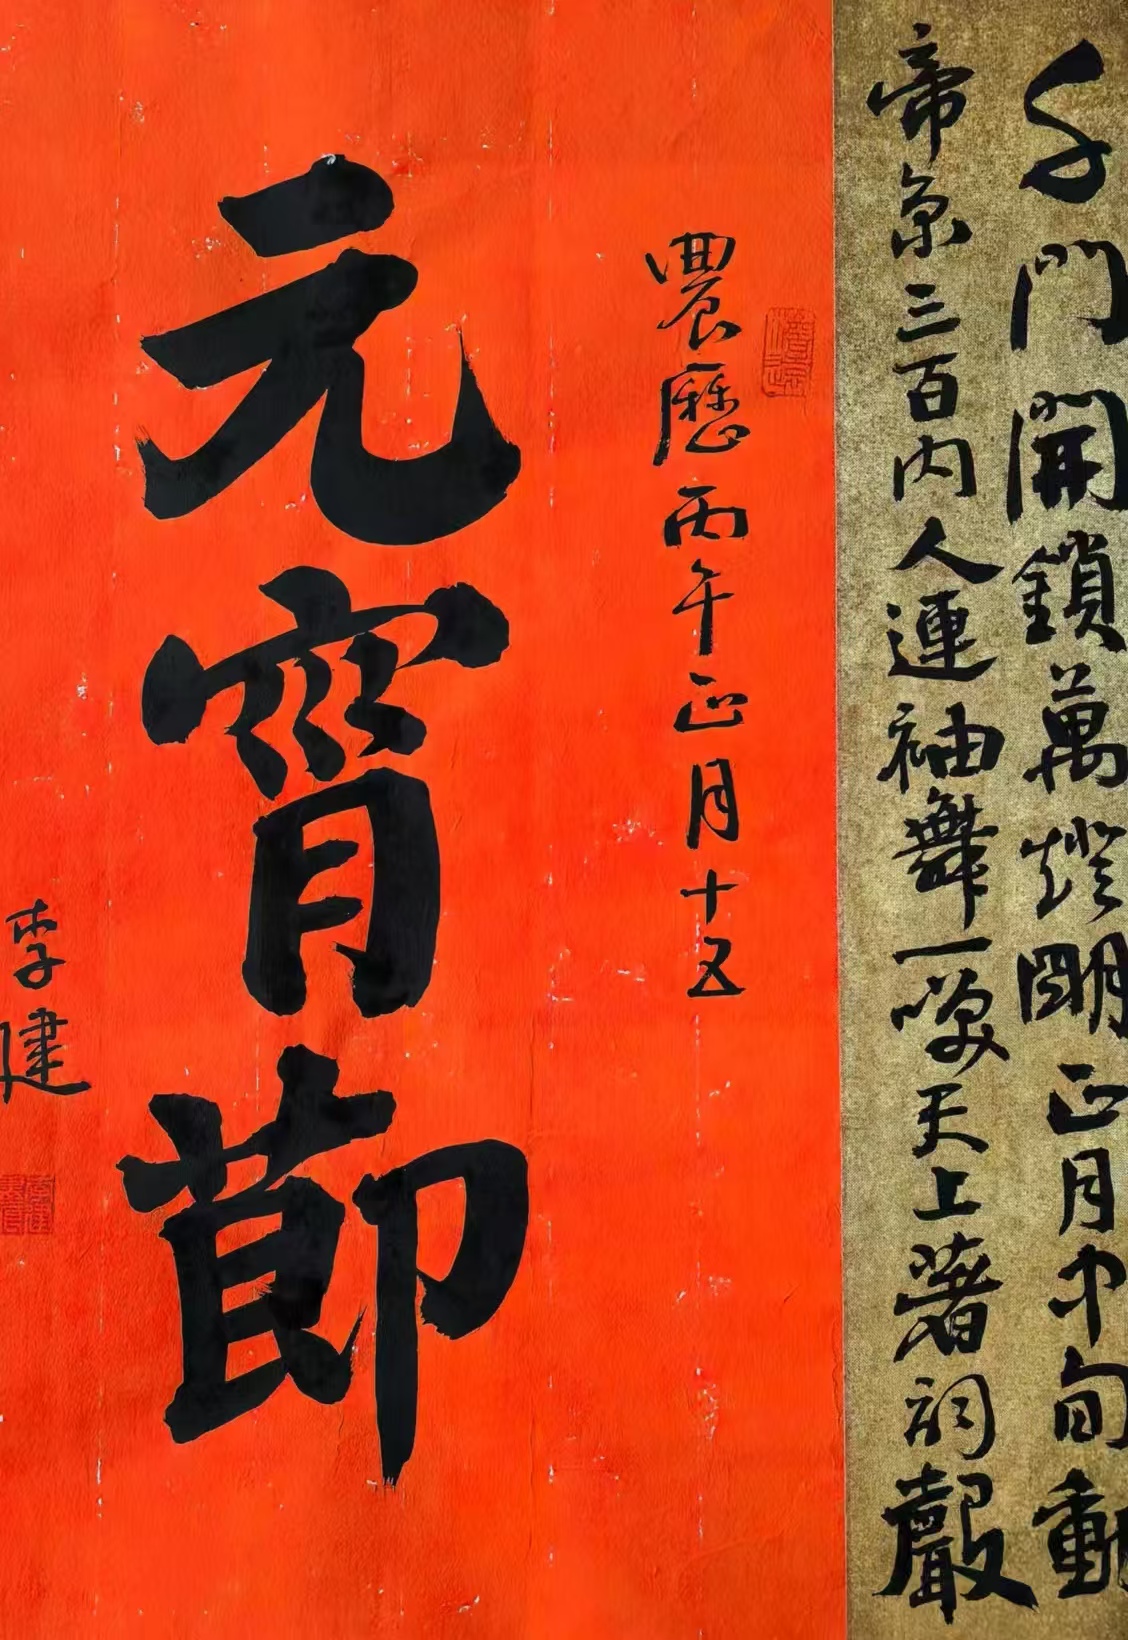 千門開鎖萬燈明正月中旬動
帝京三百内人連袖舞一天上著詞聲
農曆丙午正月十五
元宵節
李建